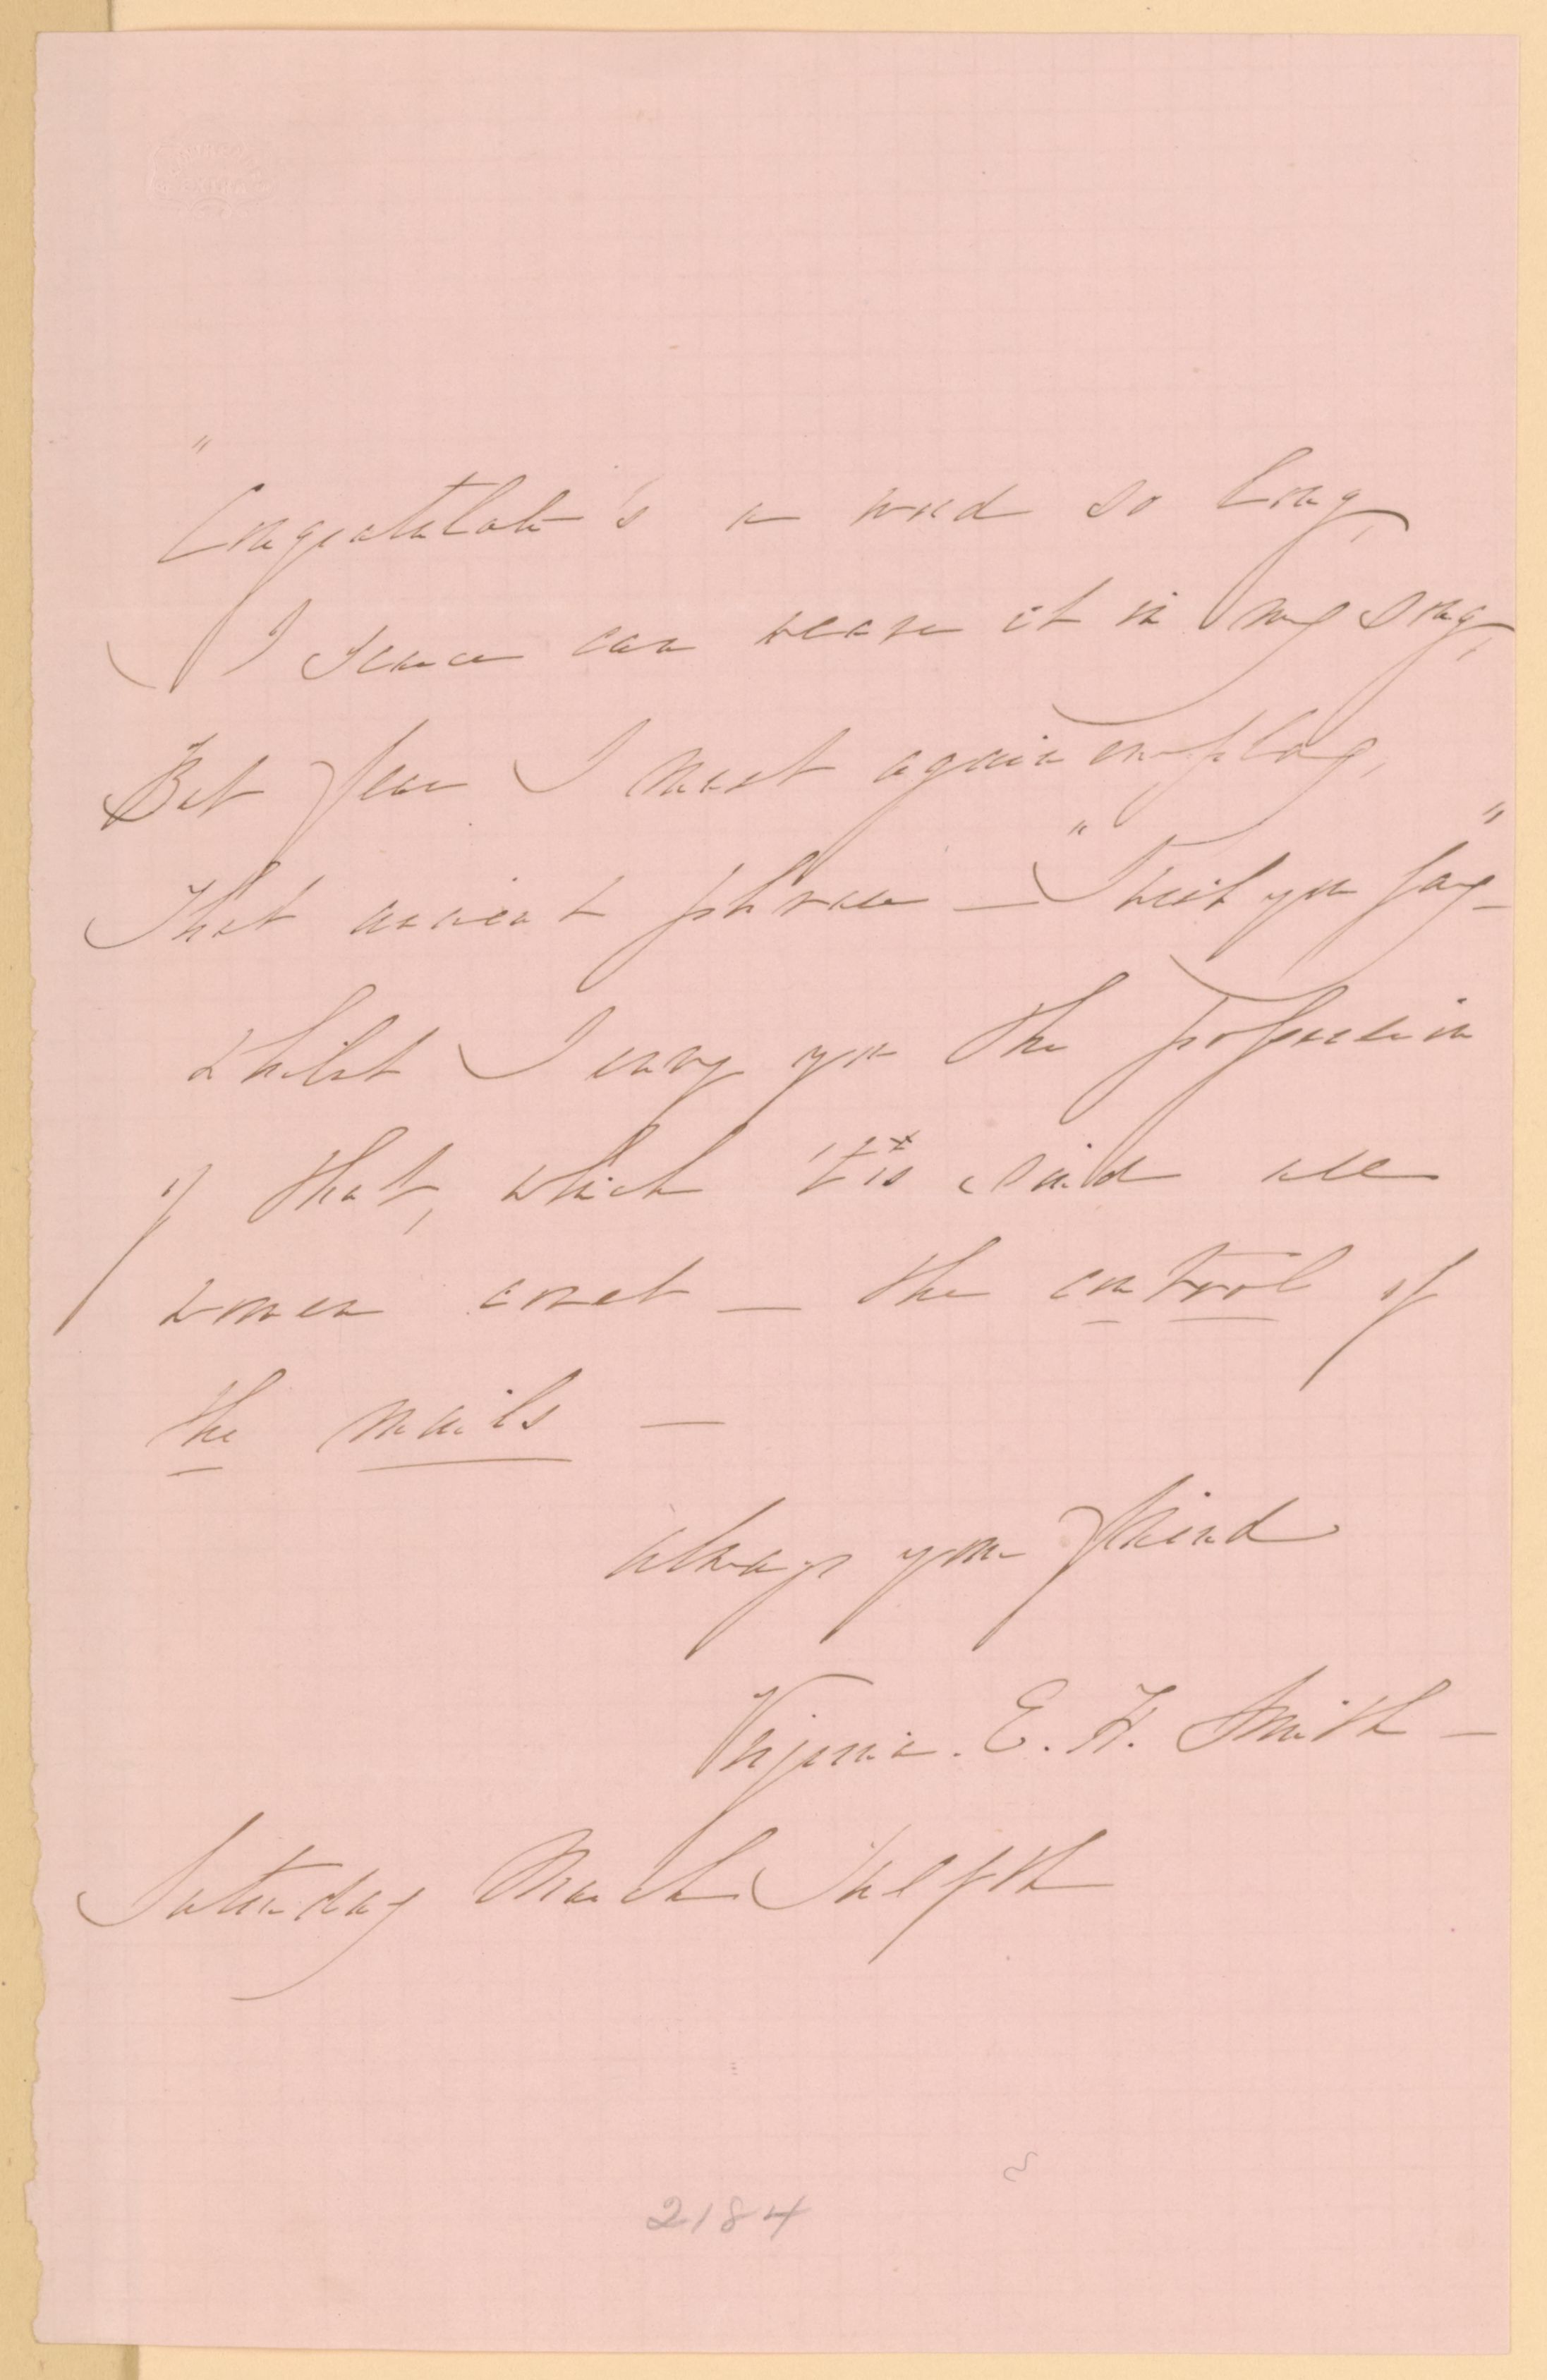 "Congratulate's a word so long,
I scarce can weave it in my song,
But fear I must again employ,
That ancient phrase — "I wish you joy" —
Whilst I envy you the possession
of that, which 'tis said all
women covet — the control of
the mails —
Always your friend
Virginia. E. H. Smith —
Saturday March Twelfth
2184